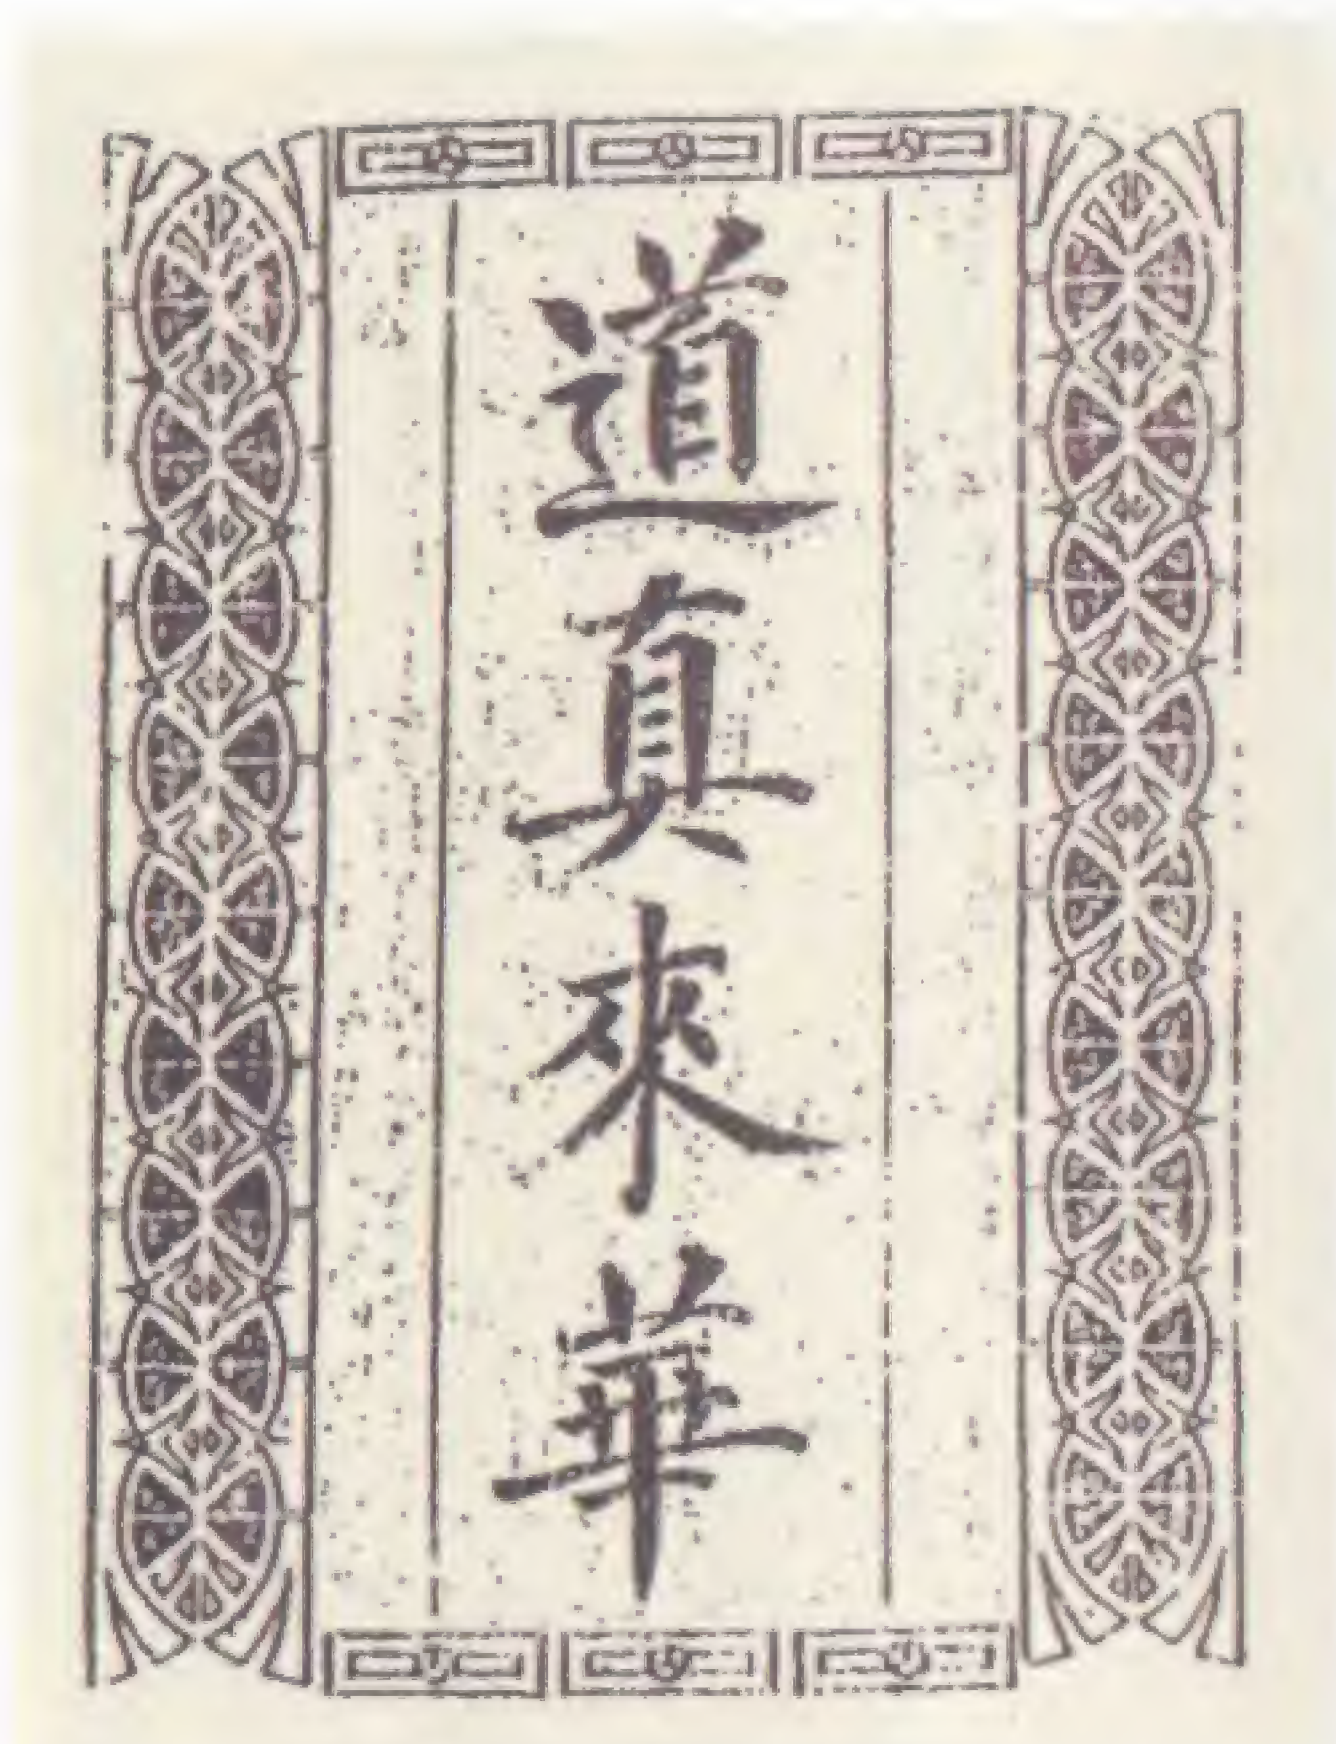 道真來華